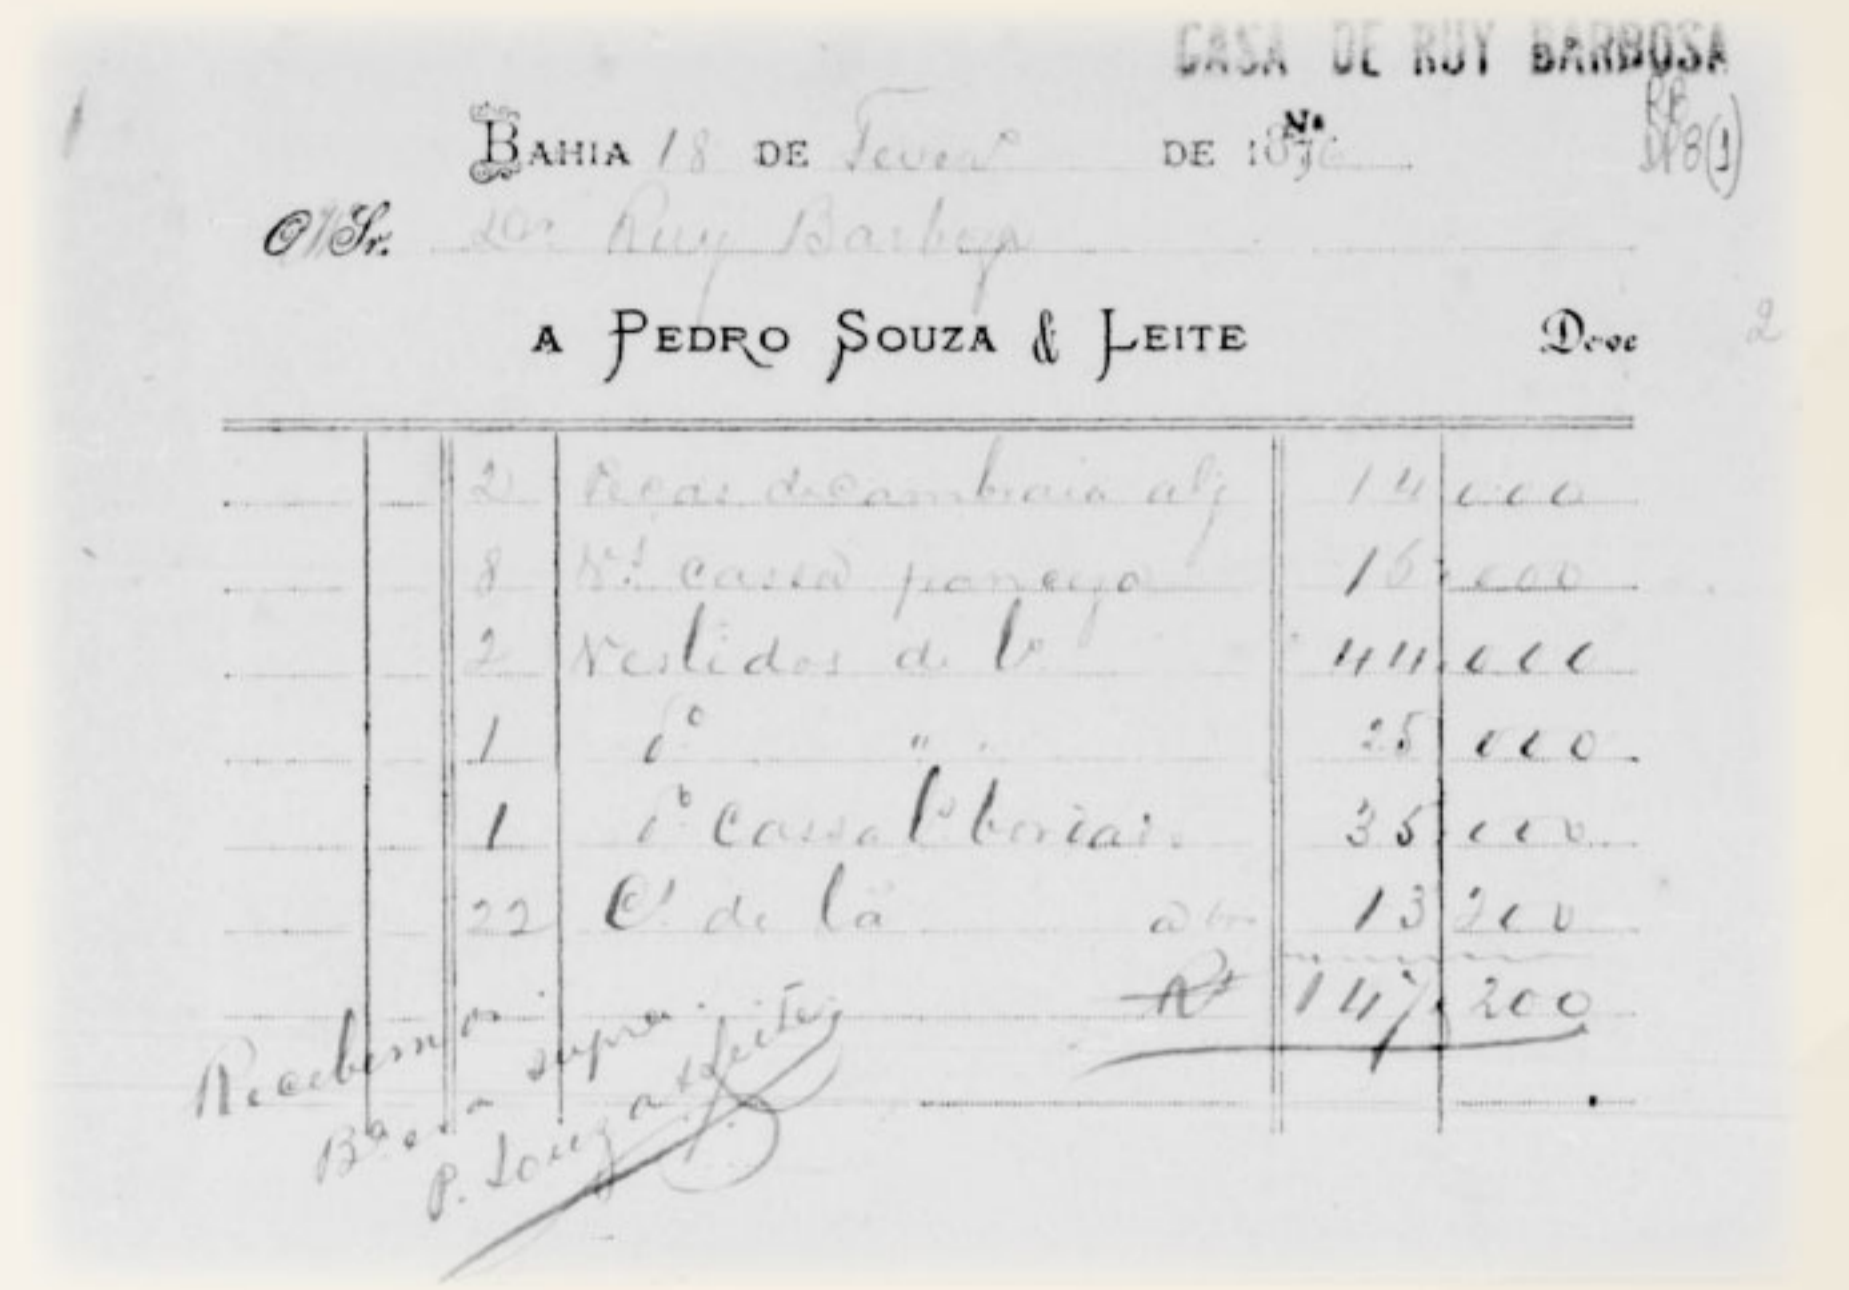 CASA DE RUY BARBOSA
RB
DP8(1)
1
BAHIA 18 DE Fever° DE 1876
Nº
O Sr. Dor Ruy Barbosa
A PEDRO SOUZA & LEITE Deve
2
2 Peças de cambraia alg 14 000
8 cassa 16 000
2 Vestidos de 44 000
1 d° " 25 000
1 d° Cassa 35 000
22 C.s de lã 13 200
Rs 147 200
Recebemos
Bª era supra
P. Souza & Leite